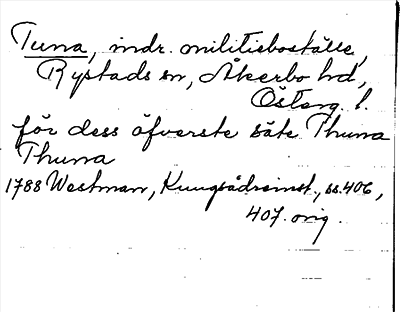 Tuna, indr. militieboställe,
Rystads sn, Åkerbo hd,
Österg. l.
för dess öfverste säte Thuna
Thuna
1788 Westman, Kungsådreinst., ss. 406,
407. orig.